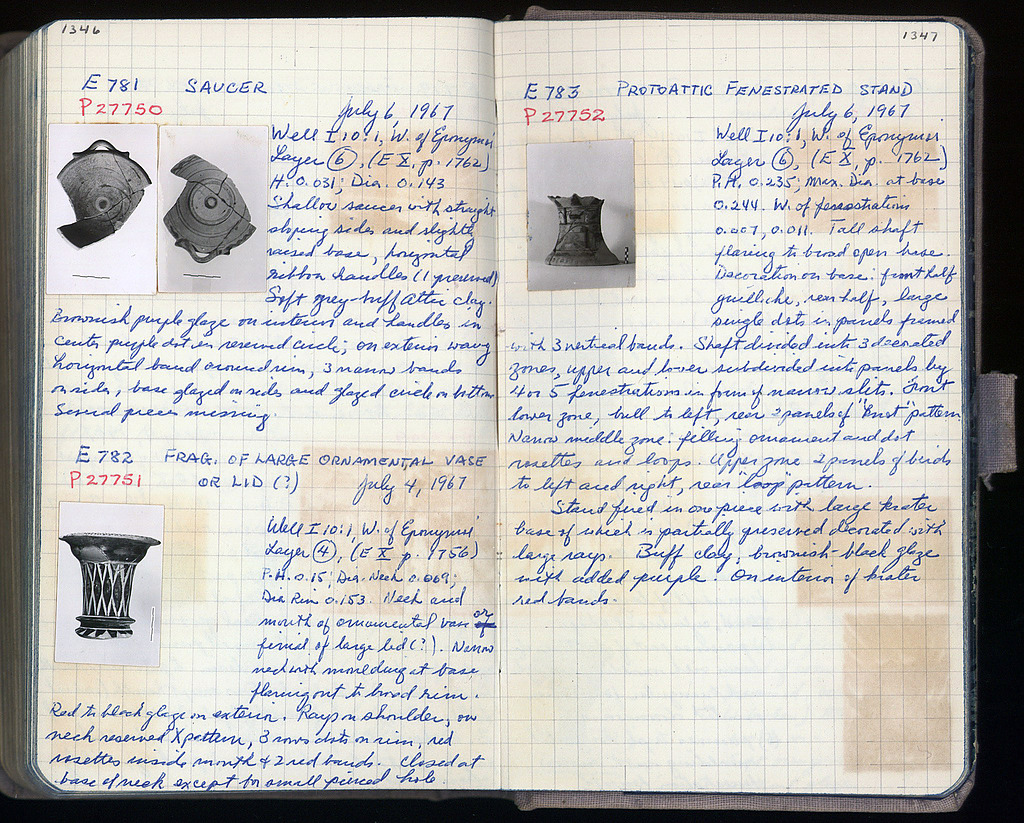 1346
E 781 SAUCER
P 27750
July 6, 1967
Well I 10:1, W. of Eponymoi
Layer 6, (E X, p. 1762)
H. 0.031; Dia. 0.143
Shallow saucer with straight
sloping sides and slightly
raised base, horizontal
ribbon handles (1 preserved)
Soft grey-buff Attic clay.
Brownish purple glaze on interior and handles in
center purple dot in reserved circle; on exterior wavy
horizontal band around rim, 3 narrow bands
on side, base glazed on sides and glazed circle on bottom
Several pieces missing.
E 782 FRAG. OF LARGE ORNAMENTAL VASE
P 27751 OR LID (?) July 4, 1967
Well I 10:1, W. of Eponymoi
Layer 4, (E X p. 1756)
P.H. 0.15; Dia. Neck 0.069;
Dia Rim 0.153. Neck and
mouth of ornamental vase or
finial of large lid (?). Narrow
neck with moulding at base
flaring out to broad rim.
Red to black glaze on exterior. Rays on shoulder, on
neck reserved X pattern, 3 rows dots on rim, red
rosettes inside mouth & 2 red bands. Closed at
base of neck except for small pierced hole.
1347
E 783 PROTOATTIC FENESTRATED STAND
P 27752
July 6, 1967
Well I 10:1, W. of Eponymoi
Layer 6, (E X, p. 1762)
P.H. 0.235; Max. Dia. at base
0.244. W. of fenestrations
0.007, 0.011. Tall shaft
flaring to broad open base.
Decoration on base: front half
guilloche, rear half, large
single dots in panels framed
with 3 vertical bands. Shaft divided into 3 decorated
zones, upper and lower subdivided into panels by
4 or 5 fenestrations in form of narrow slits. Front
lower zone, bull to left, rear 2 panels of "knot" pattern
Narrow middle zone: filling ornament and dot
rosettes and loops. Upper zone 2 panels of birds
to left and right, rear "loop" pattern.
Stand fired in one piece with large krater
base of which is partially preserved decorated with
large rays. Buff clay, brownish-black glaze
with added purple. On interior of krater
red bands.